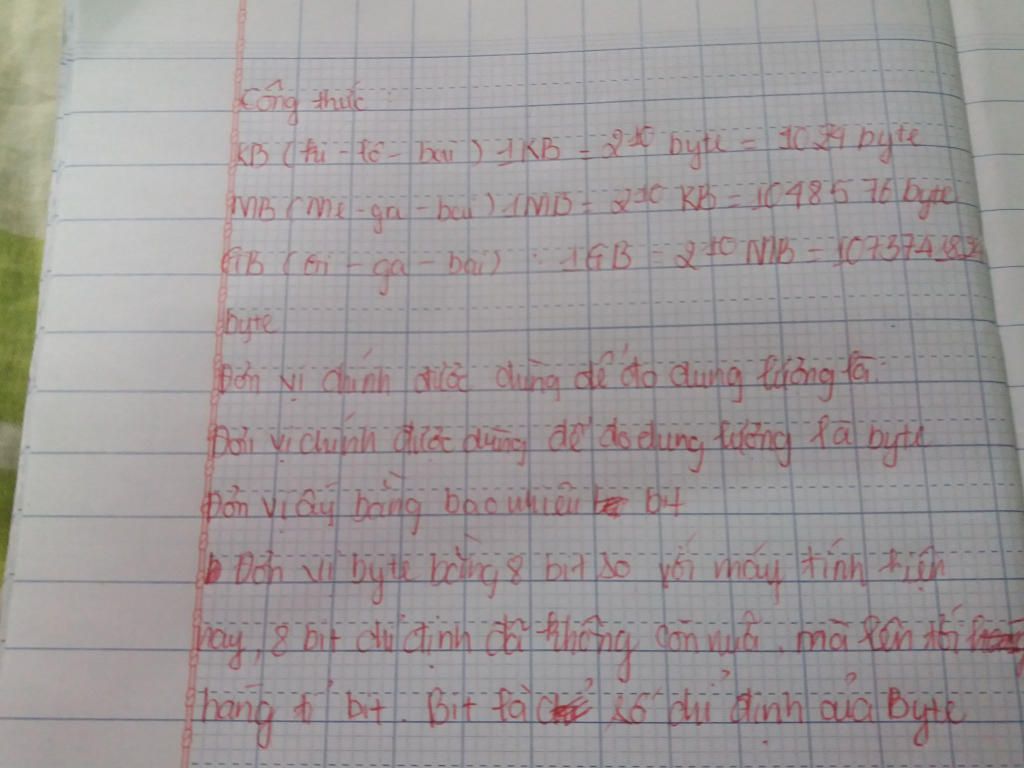 Công thức:
KB (ki-lô-bai) 1KB = 2^10 byte = 1024 byte
MB (Mê-ga-bai) 1MB = 2^10 KB = 1048576 byte
GB (Gi-ga-bai): 1GB = 2^10 MB =
byte
Đơn vị chính được dùng để đo dung lượng là:
Đơn vị chính được dùng để đo dung lượng là byte
Đơn vị ấy bằng bao nhiêu bit
Đơn vị byte bằng 8 bit so với máy tính hiện
nay, 8 bit chỉ định đã không còn nữa. mà lên tới
hàng tỉ bit. Bit là số chỉ định của Byte